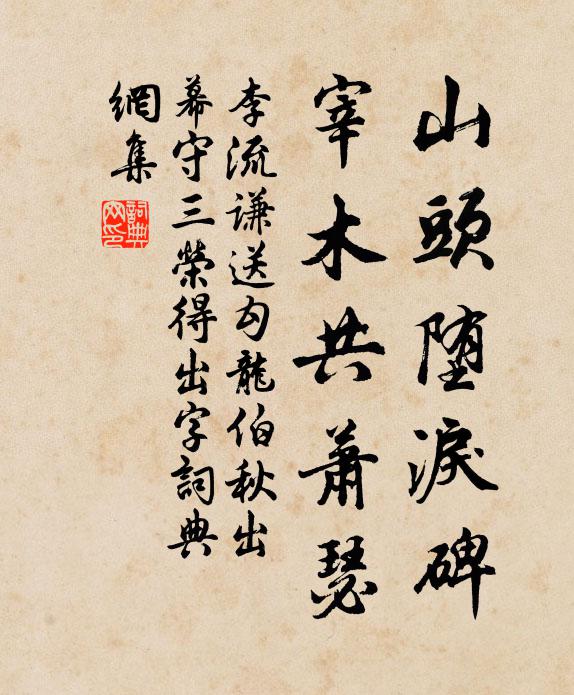 山頭堕淚碑
宰木共蕭瑟
李流謙送勾龍伯秋出
幕守三榮得出字詞典
網集
詞典
网印